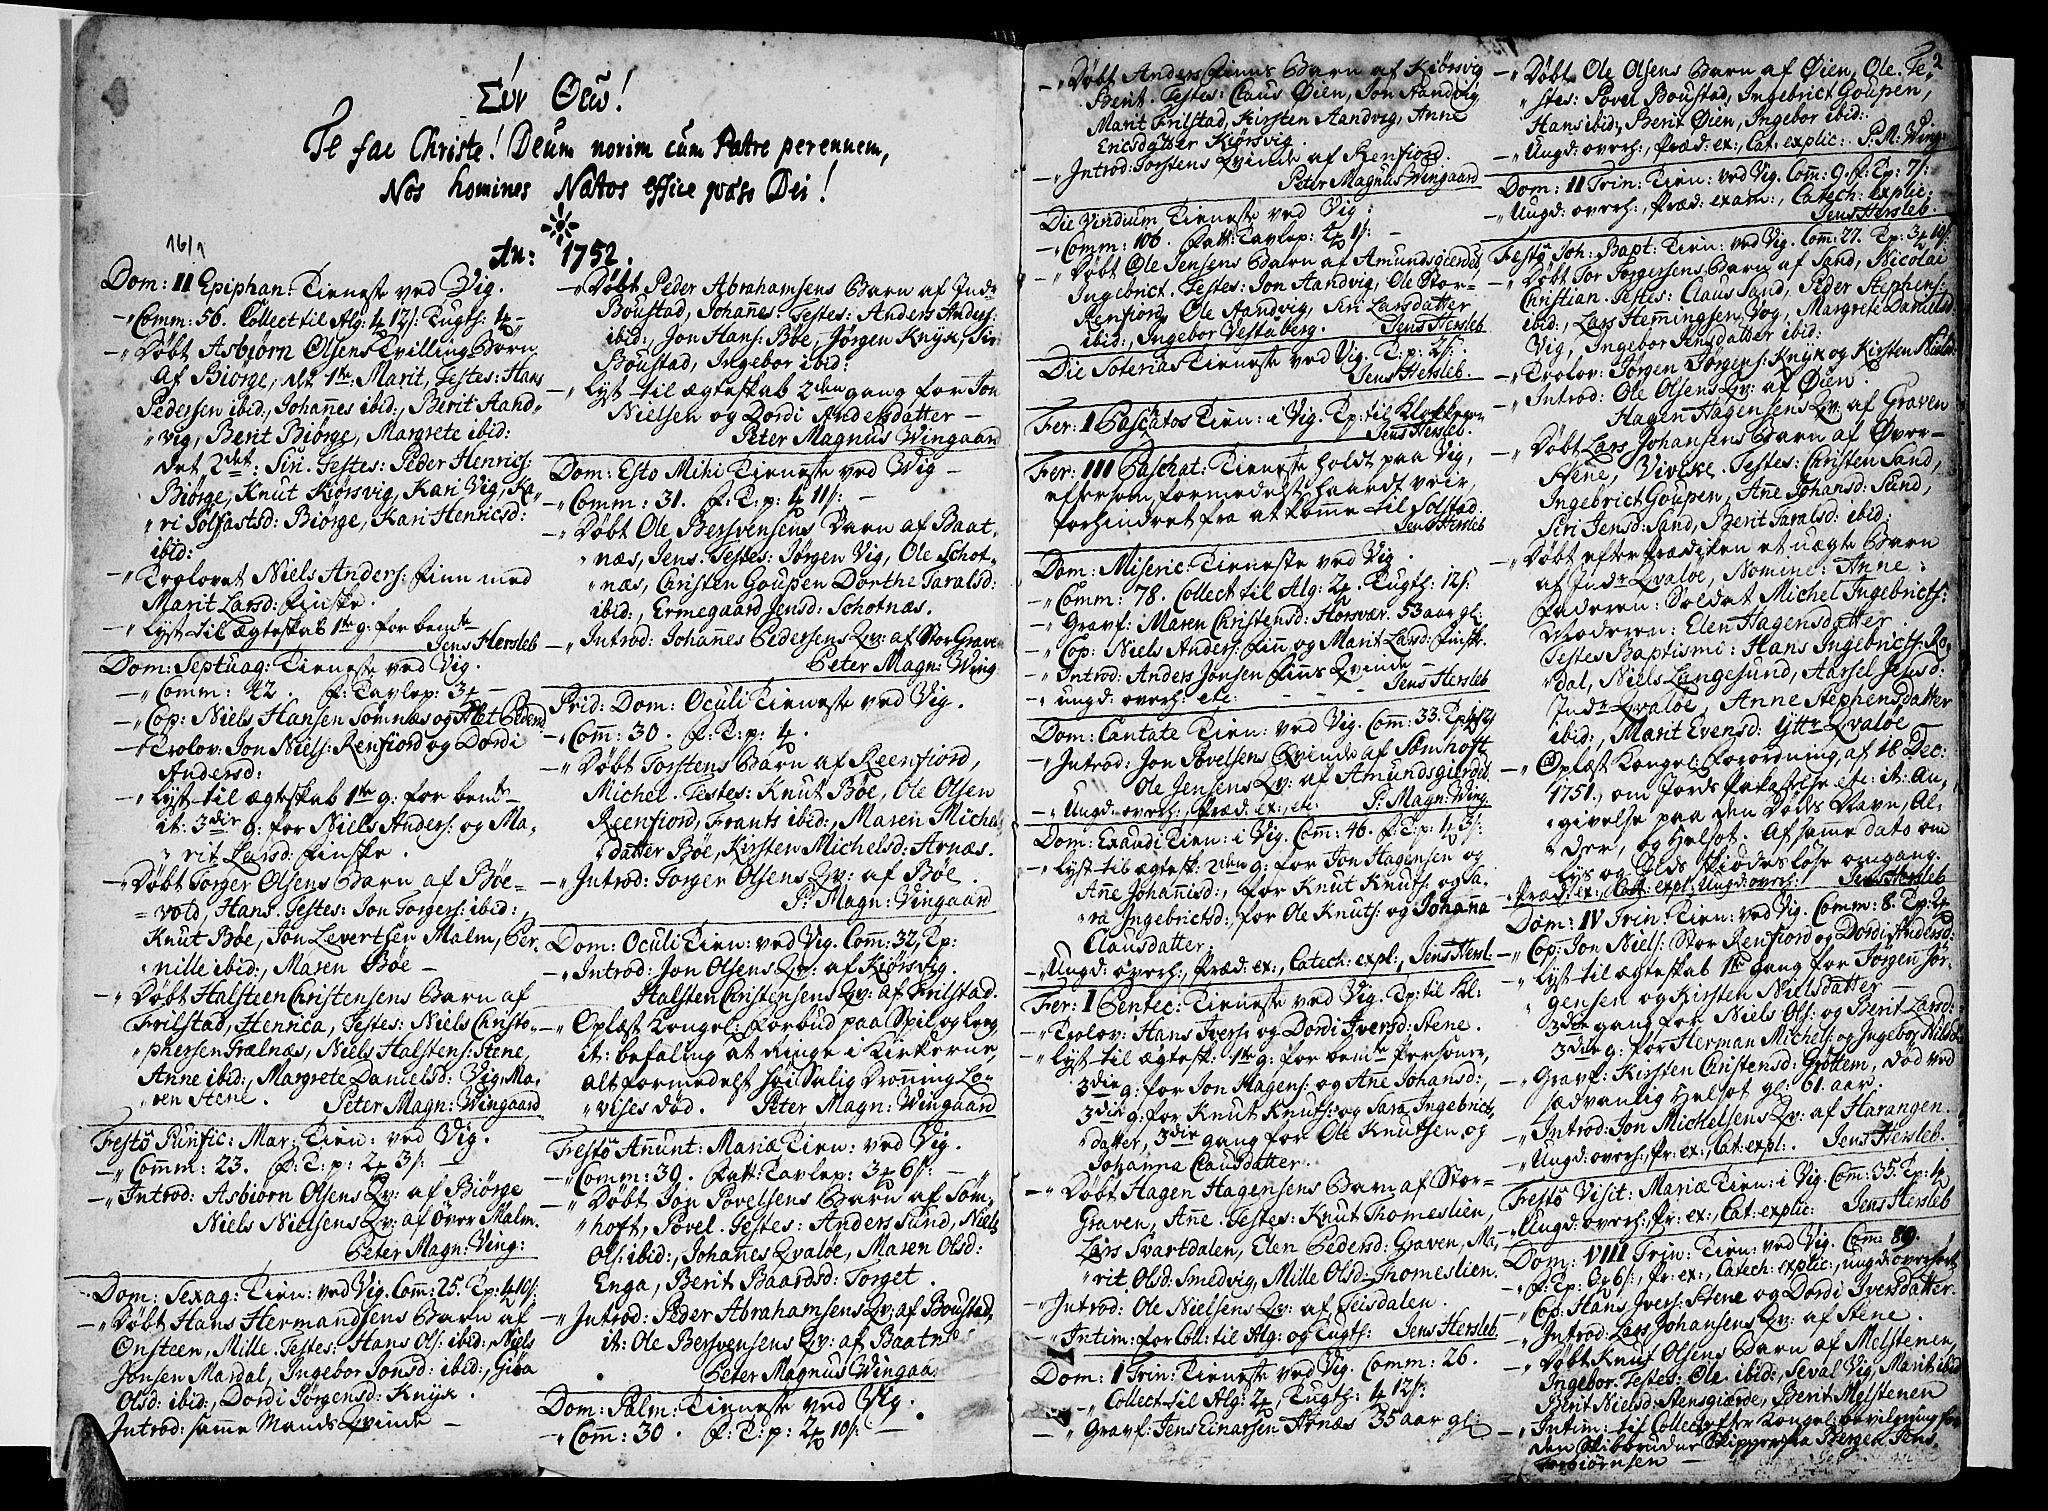 Σύν Θεῶ!
Te fac Christe! Deum norim cum Patre perennem,
Nos homines Natos effice qvæso Dei!
16/1
An: 1752.
Dom: II Epiphan: Tieneste ved Vig.
Comm: 56. Collect til Alg: 12/: Tugts:
Døbt Asbiørn Olsens Tvilling Børn
af Biørge, det 1te: Marit, Testes: Hans
Pedersen ibid:, Johañes ibid:, Berit Aand-
vig, Berit Biørge, Margrete ibid:
det 2det: Siri. Testes: Peder Henrics:
Biørge, Knut Kiørsvig, Kari Vig, Ka-
ri Tolfastsd: Biørge, Kari Henricsd:
ibid:
Trolovet Niels Anders: Finn med
Marit Larsd: Finske.
Lyst til ægteskab 1te g: for bemte
Jens Hersleb
Dom: Septuag: Tieneste ved Vig.
Comm: 22. f: Tavlep: 3
Cop: Niels Hansen Sømnæs og Alet Pedersd
Trolov: Jon Niels: Renfiord og Dordi
Andersd:
Lyst til ægteskab 1te g: for bemte
it: 3die g: for Niels Anders: og Ma-
rit Larsd: Finske.
Døbt Torger Olsens Barn af Bøe-
vold, Hans. Testes: Jon Torgers: ibid:,
Knut Bøe, Jon Levertsen Malm, Per-
nille ibid:, Maren Bøe
Døbt Halsteen Christensens Barn af
Frilstad, Henrica, Testes: Niels Christo-
phersen Trælnæs, Niels Halstens: Stene,
Anne ibid:, Margrete Danielsd: Vig, Ma-
ren Stene. Peter Magn: Wingaard
Festo Purific: Mar: Tien: ved Vig.
Comm: 23. f: T: p: 2 3/:
Introd: Asbiørn Olsens Qv: af Biørge
Niels Nielsens Qv: af Over Malm.
Peter Magn: Wing:
Dom: Sexag: Tien: ved Vig. Comm: 25. Tp:
Døbt Hans Hermandsens Barn af
Onsteen, Mille. Testes: Hans Ols: ibid:, Niels
Jonsen Mardal, Ingebor Jonsd: ibid:,
Olsd: ibid:, Dordi Jørgensd: Knyx.
Introd: same Mands Qvinde
Døbt Peder Abrahamsens Barn af Indr
Boustad, Johañes. Testes: Anders Anders:
ibid:, Jon Hans: Bøe, Jørgen Knyx, Siri
Boustad, Ingebor ibid:
Lyst til ægteskab 2den gang for Jon
Nielsen og Dordi Andersdatter
Peter Magnus Wingaard
Dom: Esto Mihi Tieneste ved Vig
Comm: 31. f: T: p: 11/:
Døbt Ole Bersvensens Barn af Baat-
næs, Jens. Testes: Jørgen Vig, Ole Schot-
næs, Christen Goupen, Dorthe Taralsd:
ibid:, Ermegaard Jensd: Schotnæs.
Introd: Johañes Pedersens Qv: af Stor Graven
Peter Magn: Wing
Prid: Dom: Oculi Tieneste ved Vig.
Com: 30. f: T: p:
Døbt Torstens Barn af Reenfiord,
Michel. Testes: Knut Bøe, Ole Olsen
Reenfiord, Frants ibid:, Maren Michels
datter Bøe, Kirsten Michelsd: Arnæs.
Introd: Torger Olsens Qv: af Bøe.
P: Magn: Wingaard
Dom: Oculi Tien: ved Vig. Com: 32, Tp:
Introd: Jon Olsens Qv: af Kiørsvig.
Halsten Christensens Qv: af Frilstad.
Oplæst Kongel: Forbud paa Spil og Leeg
it: befaling at Ringe i Kirkerne,
alt formedelst høi Salig Droñing Lo-
vises død. Peter Magn: Wingaard
Festo Añunt: Mariæ Tien: ved Vig.
Comm: 39. Fatt: Tavlep: 3 6/:
Døbt Jon Povelsens Barn af Søm-
hoft, Povel. Testes: Anders Sund, Niels
Ols: ibid:, Johañes Qvaløe, Maren Olsd:
Enga, Berit Baardsd: Torget.
Introd: Peder Abrahamsens Qv: af Boustad,
it: Ole Bersvensens Qv: af Baatnæs
Peter Magnus Wingaa
Dom: Palm: Tieneste ved Vig.
Com: 30. f: T: p: 2 10/:
Døbt Anders Finns Barn af Kiørsvig
Berit. Testes: Claus Øien, Jon Aandvig
Marit Frilstad, Kirsten Aandvig, Anne
Ericsdatter Kiørsvig.
Introd: Torstens Qvinde af Renfiord.
Peter Magnus Wingaard
Die Viridium Tieneste ved Vig:
Comm: 106. Fatt: Tavlep: 1/:
Døbt Ole Jensens Barn af Amundsgierdet,
Ingebrict. Testes: Jon Aandvig, Ole Stor-
Renfiord, Ole Aandvig, Siri Larsdatter
ibid:, Ingebor Vestaberg. Jens Hersleb
Die Soterias Tieneste ved Vig. T: p: 2/:
Jens Hersleb.
Fer: I Pascatos Tien: i Vig. Tp: til Klokkeren
Jens Hersleb.
Fer: III Paschat: Tieneste holdt paa Vig,
eftersom formedelst haardt veir,
forhindret fra at kome til Solstad.
Jens Hersleb
Dom: Miseric Tieneste ved Vig.
Comm: 78. Collect til Alg: 2 Tugth: 12/:
Gravf: Maren Christensd: Horsvær. 53 aar gl:
Cop: Niels Anders: Finn og Marit Larsd: Finsk.
Introd: Anders Jonsen Finns Qvinde
Ungd: overh: etc: Jens Hersleb
Dom: Cantate Tien: ved Vig. Com: 33. Tp:
Introd: Jon Povelsens Qvinde af Sømhoft
Ole Jensens Qv: af Amundsgierdet
Ungd: overh:, Præd: ex:, etc: P: Magn: Wing
Dom: Exaudi Tien: i Vig. Com: 46. f: T: p: 3/:
Lyst til ægtesk: 2den g: for Jon Hagensen og
Añe Johañisd:, for Knut Knuts: og Sa-
ra Ingebrictsd:, for Ole Knuts: og Johaña
Clausdatter.
Ungd: overh:, Præd: ex:, Catech: expl:, Jens Hersl:
Fer: I Pentec: Tieneste ved Vig. Tp: til Kl:
Trolov: Hans Ivers: og Dordi Iversd: Stene.
Lyst til ægtesk: 1te g: for bemte Personer,
3die g: for Jon Hagens: og Añe Johansd:,
3die g: for Knut Knuts: og Sara Ingebricts-
datter, 3die gang for Ole Knutsen og
Johanna Clausdatter.
Døbt Hagen Hagensens Barn af Stor-
Graven, Añe. Testes: Knut Thomeslien,
Lars Svartdalen, Elen Pedersd: Graven, Ma-
rit Olsd: Smedvig, Mille Olsd: Thomeslien.
Introd: Ole Nielsens Qv: af Teisdalen.
Intim: for Coll: til Alg: og Tugth: Jens Hersleb.
Dom: I Trin: Tieneste ved Vig. Comm: 26.
Collect til Alg: 2, Tugth: 12/:
Gravf: Jens Einarsen Arnæs 35 aar gl:
2
Døbt Ole Olsens Barn af Øien, Ole. Te-
stes: Povel Boustad, Ingebrict Goupen,
Hans ibid:, Berit Øien, Ingebor ibid:
Ungd: overh:, Præd: ex:, Cat: explic: P: M: Wing:
Dom: II Trin: Tien: ved Vig. Comm: 9. f: Tp: 7/:
Ungd: overh:, Præd: exam:, Catech: explic:
Jens Hersleb.
Festo Joh: Bapt: Tien: ved Vig. Com: 27. Tp: 3
Døbt Tor Torgersens Barn af Sand, Nicolai
Christian. Testes: Claus Sand, Peder Stephens:
ibid:, Lars Hemingsen Vog, Margrete Danielsd
Vig, Ingebor Jensdatter ibid:
Trolov: Jørgen Jørgens: Knyx og Kirsten Nielsd:
Introd: Ole Olsens Qv: af Øien.
Hagen Hagensens Qv: af Graven
Døbt Lars Johansens Barn af Over-
Stene, Vivike. Testes: Christen Sand,
Ingebrict Goupen, Añe Johansd: Sund,
Siri Jensd: Sand, Berit Taralsd: ibid:
Døbt efter Prædiken et uægte Barn
af Indr Qvaløe, Nomine: Anne:
Faderen: Soldat Michel Ingebricts:
Moderen: Elen Hagensdatter.
Testes Baptismi: Hans Ingebricts: Ro-
dal, Niels Langesund, Aarsel Jensd:
Indr Qvaløe, Anne Stephensdatter
ibid:, Marit Evensd: Yttr Qvaløe
Oplæst Kongel: Forordning af 18 Dec:
1751., om Jords Paakastelse etc: it: An-
givelse paa den Døds Navn, Al-
der, og Helsot. Af same dato om
Lys og Ilds skiødesløse omgang.
Præd: ex:, Cat: expl: Ungd: overh: Jens Hersleb
Dom: IV Trin: Tien: ved Vig. Comm: 8. Tp:
Cop: Jon Niels: Stor Renfiord og Dordi Andersd:
Lyst til ægteskab 1te gang for Jørgen Jør-
gensen og Kirsten Nielsdatter
3die gang for Niels Ols: og Berit Larsd:
3die g: for Herman Michels: og Ingebor Nilsd:
Gravf: Kirsten Christensd: Grøttem, død ved
sædvanlig Helsot gl: 61. aar.
Introd: Jon Michelsens Qv: af Harangen.
Ungd: overh:, Pr: ex:, Cat: expl:. Jens Hersleb.
Festo Visit: Mariæ Tien: i Vig. Com: 35. Tp:
Ungd: overh:, Pr: ex:, Cat: explic: Jens Hersleb
Dom: VIII Trin: Tien: ved Vig. Com: 89.
f: Tp: 6/:, Pr: ex:, Catech: explic:, ungd: overhørt
Cop: Hans Ivers: Stene og Dordi Iversdatter.
Introd: Lars Johansens Qv: af Stene.
Døbt Knut Olsens Barn af Melstenen,
Ingebor. Testes: Ole ibid:, Seval Vig, Marit ibid
Berit Nielsd: Stensgiærde, Berit Melstenen
Intim: til Collect efter Kongel: bevilgning for
den Skibbrudne Skipper fra Bergen Jens
Torbiørnsen